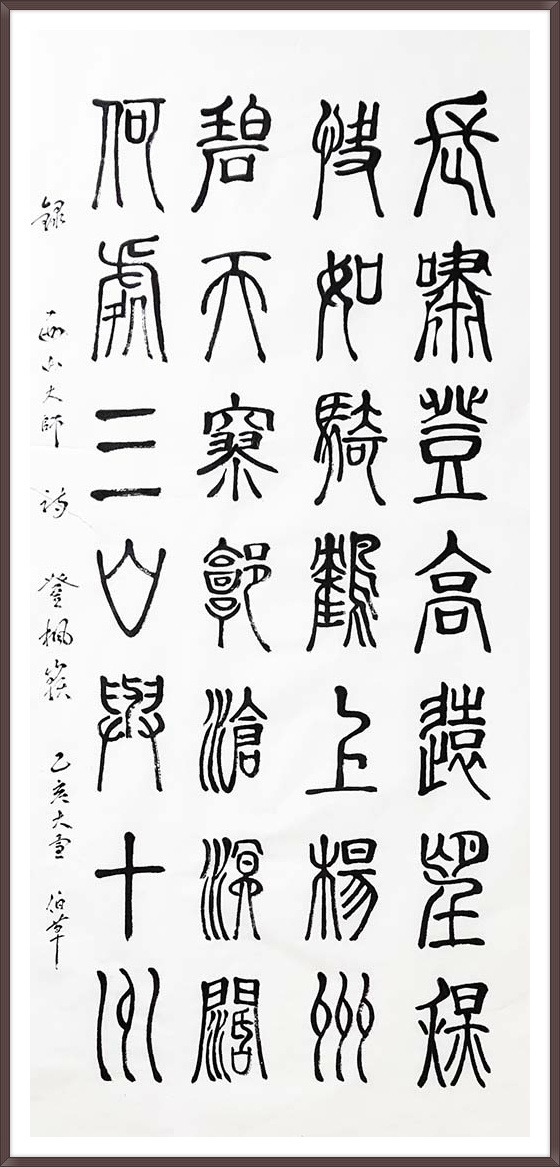 長嘯登高遠望
快如騎鶴上楊州
碧天寥廓滄溟闊
何處三山與十州
錄 西山大師 詩 登楓嶽 乙亥大雪 伯